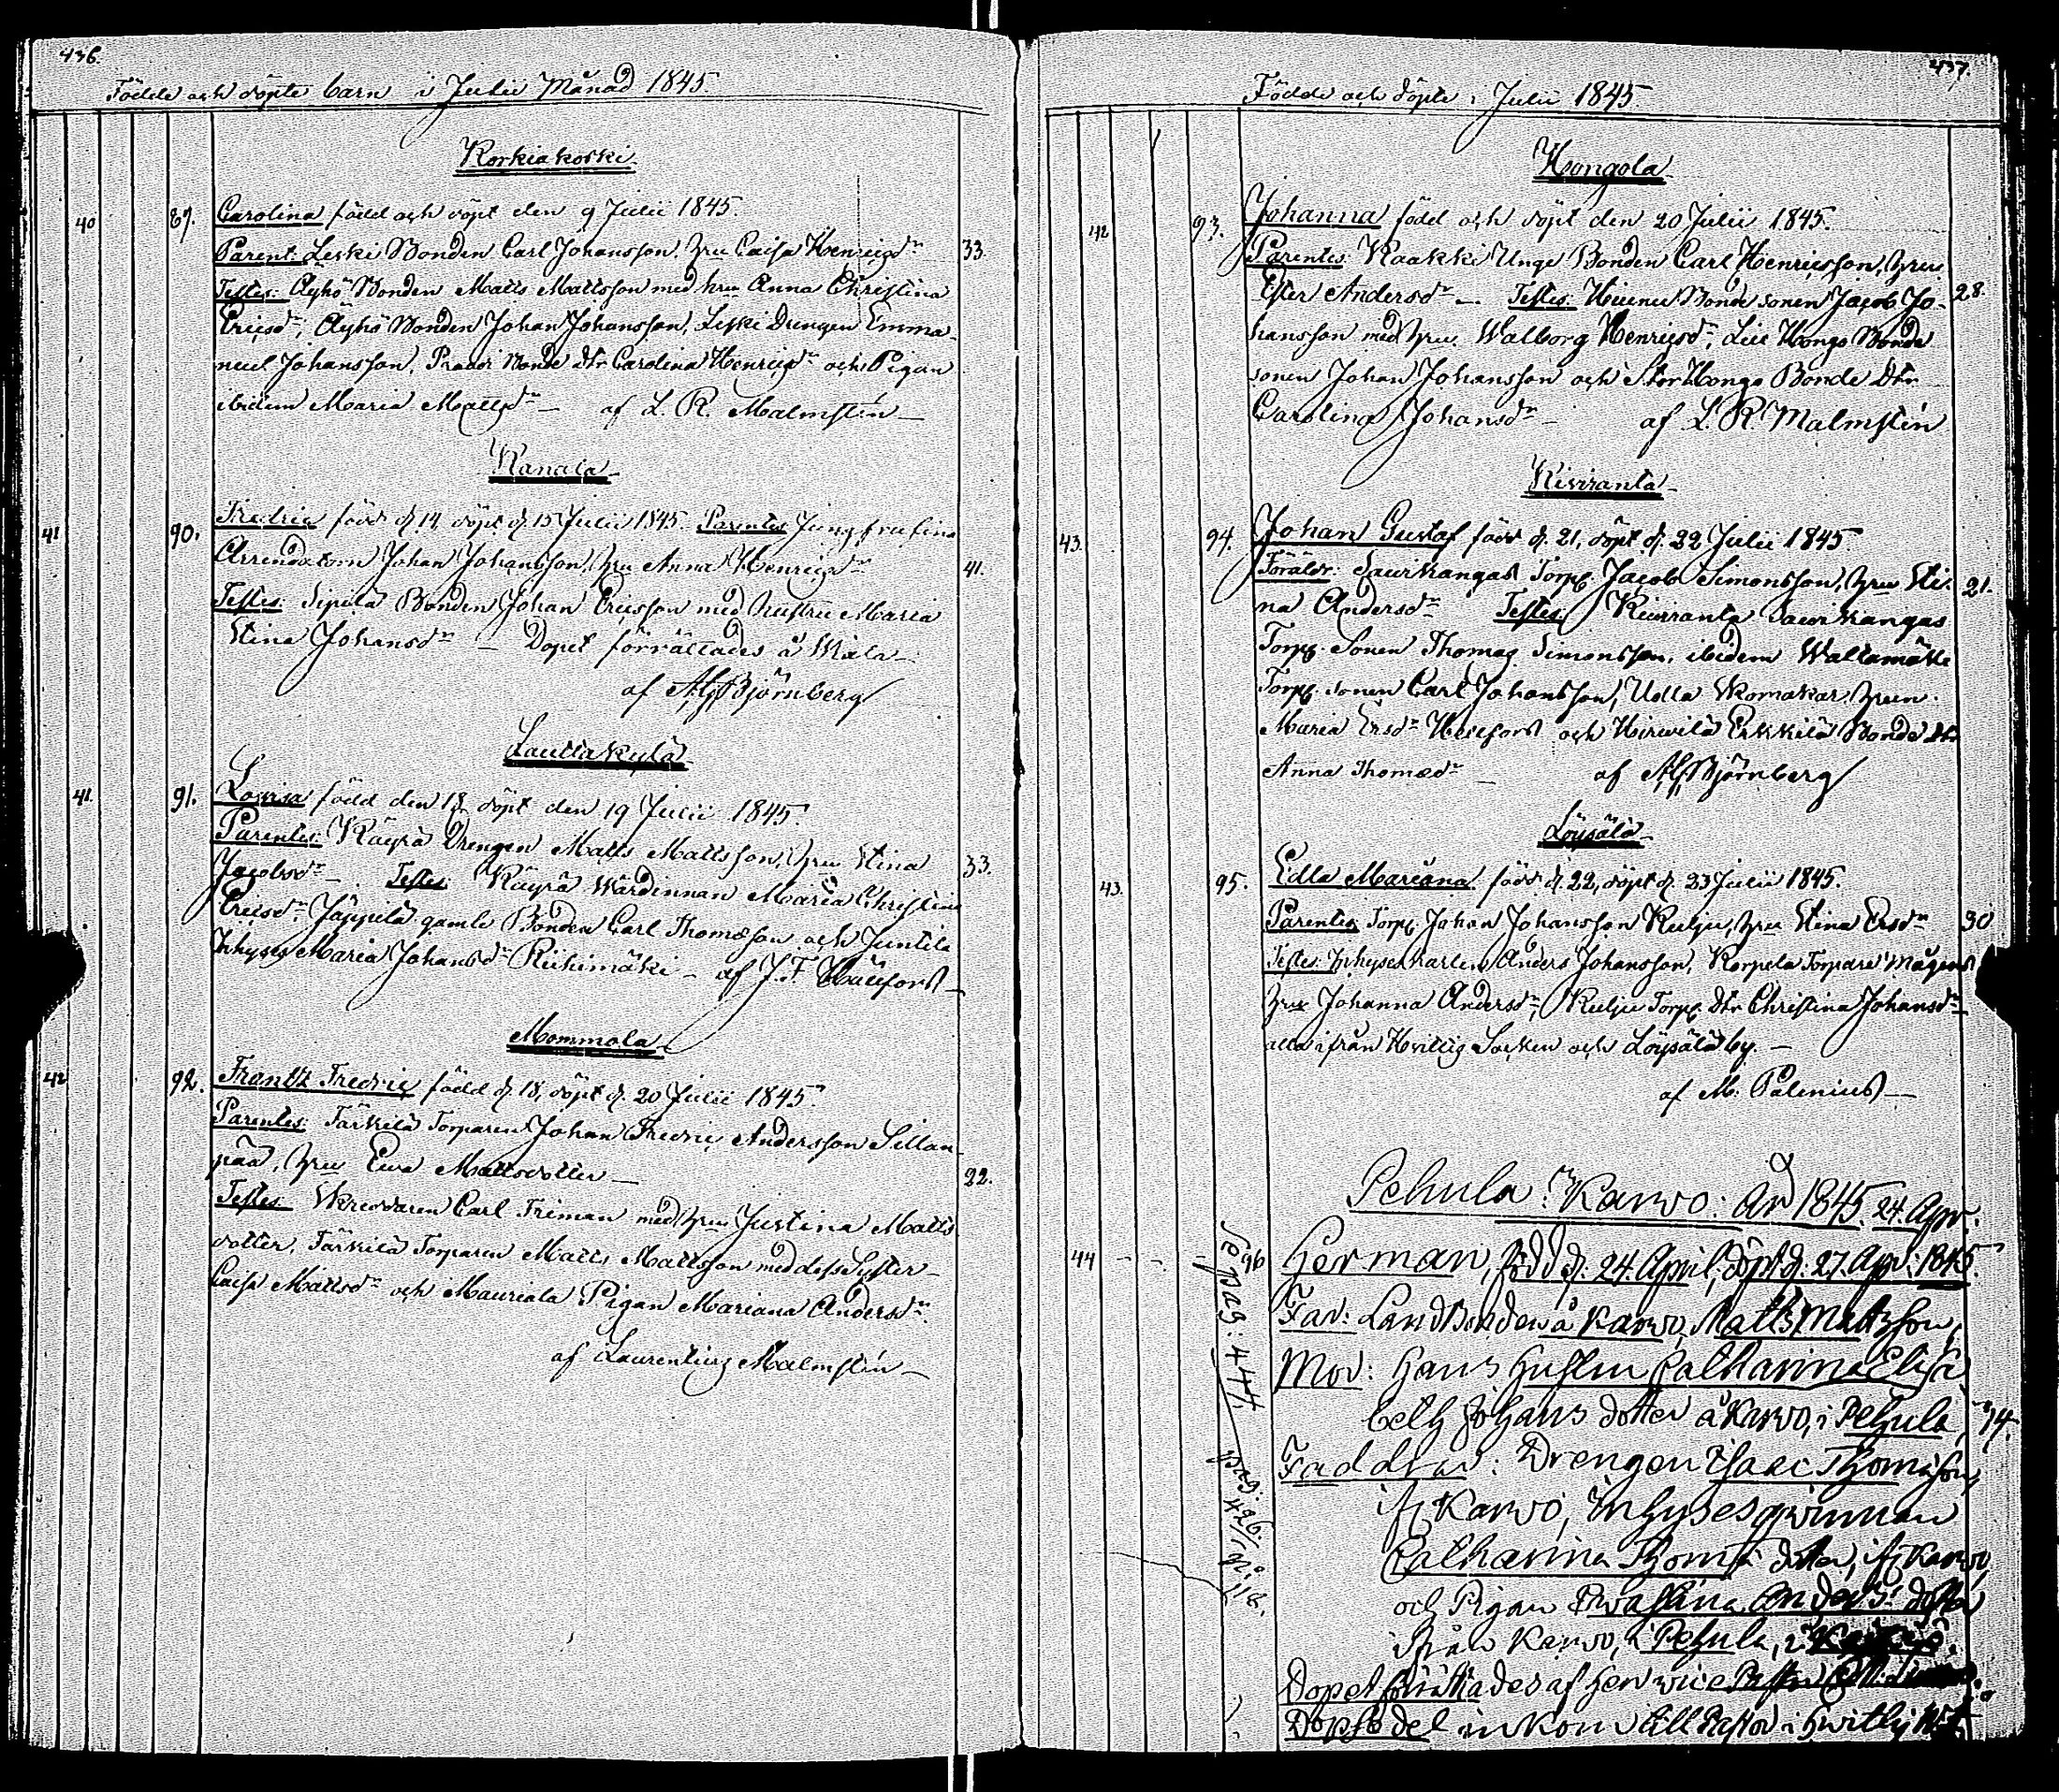 436.
Födde och döpte barn i Julii Månad 1845.
Korkiakoski
40 89. Carolina född och döpt den 9 Julii 1845.
Parent: Leski Bonden Carl Johansson, hru Caisa Henricsdr 33
Testes: Äyhö Bonden Matts Mattsson med hru Anna Christina
Ericsdr, Äyhö Bonden Johan Johansson, Leski Drengen Emma-
nuel Johansson, Bonde dtr Carolina Henricsdr och Pigan
ibidem Maria Mattsdr — af L. R. Malmstén —
Kanala
41 90. Fredric född d. 14, döpt d. 15 Julii 1845. Parentes
Arrendatorn Johan Johansson, hru Anna Henricsdr 41.
Testes: Sipilä Bonden Johan Ericsson med hustru Maria
Stina Johansdr — Dopet förrättades å Wiala —
af A G Björnberg
Lauttakylä
41 91. Lovisa född den 18 döpt den 19 Julii 1845.
Parentes: Käyrä Drengen Matts Mattsson, hru Stina 33.
Jacobsdr — Testes: Käyrä Wärdinnan Maria Christina
Ericsdr Jäppilä gamle Bonden Carl Thomasson och Juntila
Inhyses Maria Johansdr Riihimäki — af J. F. Hällfors —
Mommola
42 92. Frantz Fredric född d. 18, döpt d. 20 Julii 1845.
Parentes: Tärkilä Torparen Johan Fredric Andersson Sillan-
pää, hru Eva Mattsdotter — 22.
Testes: Skreddaren Carl Friman med hru Justina Matts
dotter, Tärkilä Torparen Matts Mattsson med dess Syster
Caisa Mattsdr och Mauriala Pigan Mariana Andersdr.
af Laurentius Malmstén —
437.
Födde och döpte i Julii 1845
Hongola
42 93. Johanna född och döpt den 20 Julii 1845.
Parentes: Kaakki Unge Bonden Carl Henricsson, hru
Ester Andersdr — Testes: Bonde sonen Jacob Jo- 28.
hansson med hru Walborg Henricsdr, Hongo Bonde
sonen Johan Johansson och Stor Hongo Bonde dtr
Carolina Johansdr — af L. R. Malmstén
Kiviranta
43. 94. Johan Gustaf född d. 21, döpt d. 22 Julii 1845.
Föräldr: Saurikangas Torp. Jacob Simonsson, hru Sti- 21.
na Andersdr Testes: Kiviranta Saurikangas
Torp. Sonen Thomas Simonsson, ibidem Wallamäki
Torp. sonen Carl Johansson, Ulla Skomakar hrun
Maria Ersdr och Hirwilä Erkkilä Bonde dtr
Anna Thomædr — af A G Björnberg
Löysälä
43. 95. Edla Mariana född d. 22, döpt d. 23 Julii 1845.
Parentes Torp. Johan Johansson Kulju, hru Stina Ersdr 30
Testes: Inhyseskarlen Anders Johansson, Korpela Torpare Mågens
hru Johanna Andersdr, Kulju Torp. dtr Christina Johansdr
alla ifrån Hvittis Socken och Löysälä by. —
af M. Polenius —
Pehula: Karvo: År 1845. 24. Apr.
44 96 Herman, född d. 24. April, döpt d. 27. Apr. 1845.
Far: Landbonden å Karvo, Matts Mattsson,
Mor: hans hustru Catharina Elisa
beth Johans dotter å Karvo, i Pehula, 14.
Faddrar: Drengen Isaac Thomasson,
ifr Karvo, Inhysesqwinnan
Catharina Thomas dotter, ifr Karvo
och Pigan Anders dotter
ifrån Karvo, i Pehula,
Dopet förrättades af herr vice Pastor
Dopsedel inkom till Pastor i Hwittis
Se pag: 447, pag. 426.